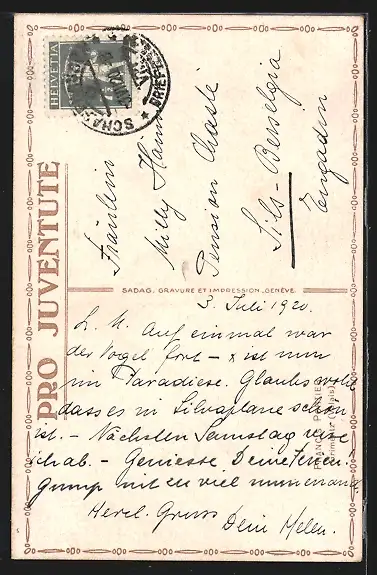 HELVETIA
PRO JUVENTUTE
Fräulein
Milly
Pension Chasté
Sils-Baselgia
Engadin
SADAG. GRAVURE ET IMPRESSION, GENÈVE.
3. Juli 1920.
L. M. Auf einmal war
der Vogel fort – x ist nun
im Paradiese. Glaubs wohl
dass es in Silvaplana schön
ist. – Nächsten Samstag reise
ich ab. – Geniesse Deine Ferien!
mit viel
Herzl. Gruss
Dein Helen.